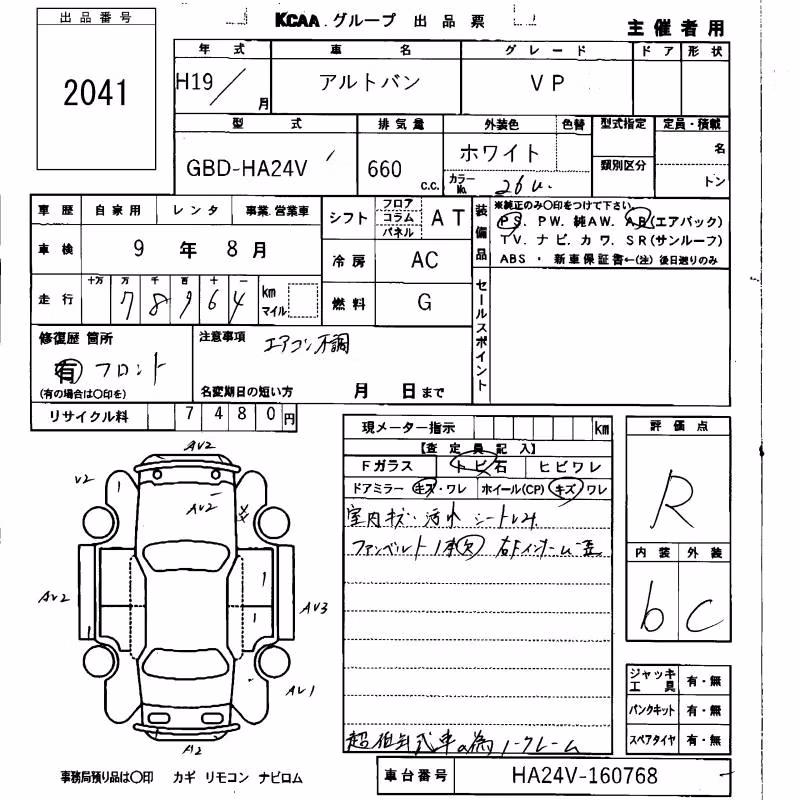 出品番号
2041
KCAA グループ 出品票
主催者用
年式 車名 グレード ドア 形状
H19/ 月 アルトバン VP
型式 排気量 外装色 色替 型式指定 定員・積載
GBD-HA24V 660 c.c. ホワイト 名
カラーNo. 26U 類別区分 トン
車歴 自家用 レンタ 事業.営業車
シフト フロア コラム パネル AT
装備品
※純正のみ〇印をつけて下さい
PS. PW. 純AW. AB(エアバック)
TV. ナビ. カワ. SR(サンルーフ)
ABS ・ 新車保証書←(注) 後日送りのみ
車検 9年8月
冷房 AC
走行 十万 万 千 百 十 一 km マイル
78964
燃料 G
セールスポイント
修復歴 箇所
有 フロント
(有の場合は〇印を)
注意事項 エアコン不調
名変期日の短い方 月 日まで
リサイクル料 7480円
現メーター指示 km
【査定員記入】
Fガラス トビ石 ヒビワレ
ドアミラー キズ・ワレ ホイール(CP) キズ/ワレ
室内キズ・汚れ シートシミ
ファンベルト1本欠
超低年式車の為ノークレーム
評価点
R
内装 外装
b C
ジャッキ工具 有・無
パンクキット 有・無
スペアタイヤ 有・無
AV2
V2
AV2
AV2
AV3
AV1
A2
事務局預り品は〇印 カギ リモコン ナビロム
車台番号 HA24V-160768